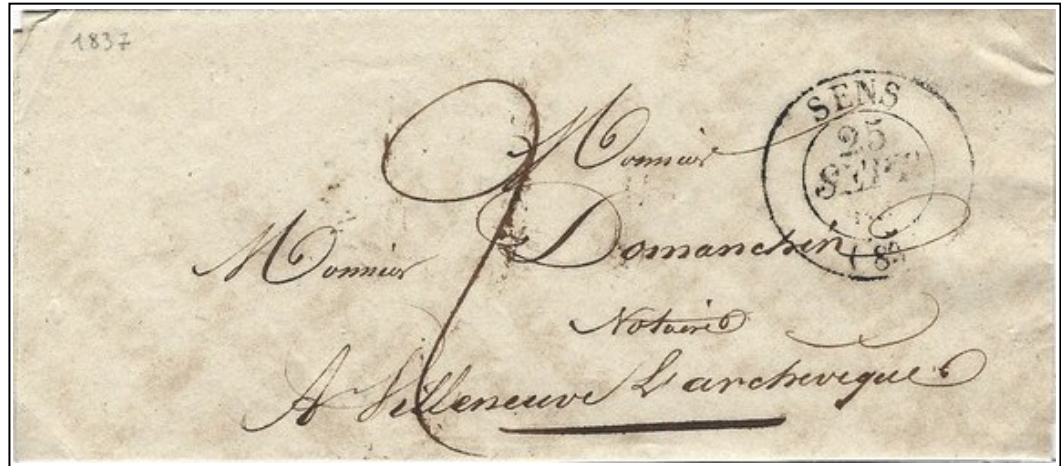 1837
SENS
25
SEPT
(8
Monsieur
Monsieur Domanchin
Notaire
A Villeneuve L'archevêque
2